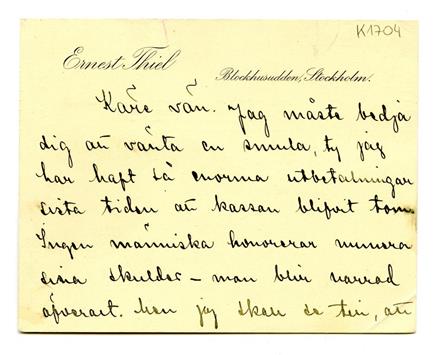 K1704
Ernest Thiel
Blockhusudden, Stockholm.
Käre vän. Jag måste bedja
dig att vänta en smula, ty jag
har haft så enorma utbetalningar
sista tiden att kassan blifvit tom.
Ingen människa honorerar numera
sina skulder – man blir narrad
öfverallt. Men jag skall se till, att